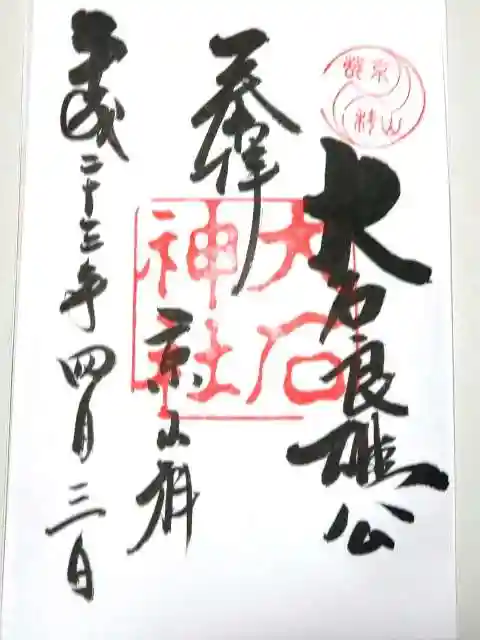 大石良雄公
奉拝
京山科
平成二十三年四月三日
大石
神社